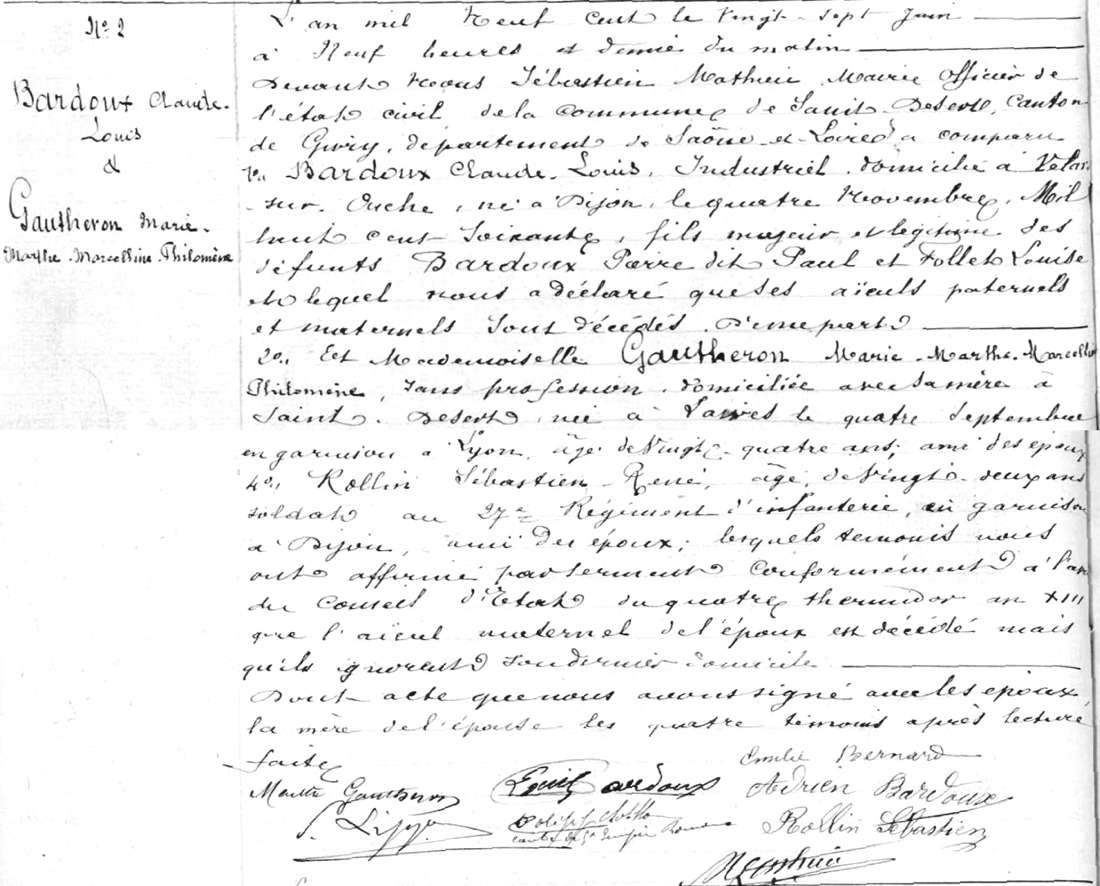 N° 2
Bardoux Claude-
Louis
&
Gautheron Marie-
Marthe-Marcelline-Philomène
L'an mil Neuf cent le Vingt-sept Juin
à Neuf heures et demie du matin
Devant Nous Sébastien Mathieu Maire Officier de
l'état civil de la commune de Saint-Désert, Canton
de Givry, département de Saône-et-Loire, a comparu
1°. Bardoux Claude-Louis, Industriel, domicilié à Velar
-sur-Ouche, né à Dijon, le quatre Novembre, Mil
huit cent Soixante, fils majeur et légitime des
défunts Bardoux Pierre dit Paul et Follet Louise
et lequel nous a déclaré que ses aïeuls paternels
et maternels sont décédés. D'une part
2°. Et Mademoiselle Gautheron Marie-Marthe-Marcelline
Philomène, sans profession, domiciliée avec sa mère à
Saint-Désert, née à le quatre Septembre
en garnison à Lyon, âgé de Vingt-quatre ans, ami des époux
4°. Rollin Sébastien-René, âgé de Vingt-deux ans
soldat au 27e Régiment d'infanterie, en garnison
à Dijon, ami des époux; lesquels témoins nous
ont affirmé par serment conformément à l'avis
du Conseil d'Etat du quatre thermidor an XIII
que l'aïeul maternel de l'époux est décédé mais
qu'ils ignorent son dernier domicile
Dont acte que nous avons signé avec les époux
la mère de l'épouse les quatre témoins après lecture
faite,
Emilie Bernard
Marthe Gautheron Bardoux Adrien Bardoux
Rollin Sébastien
Mathieu